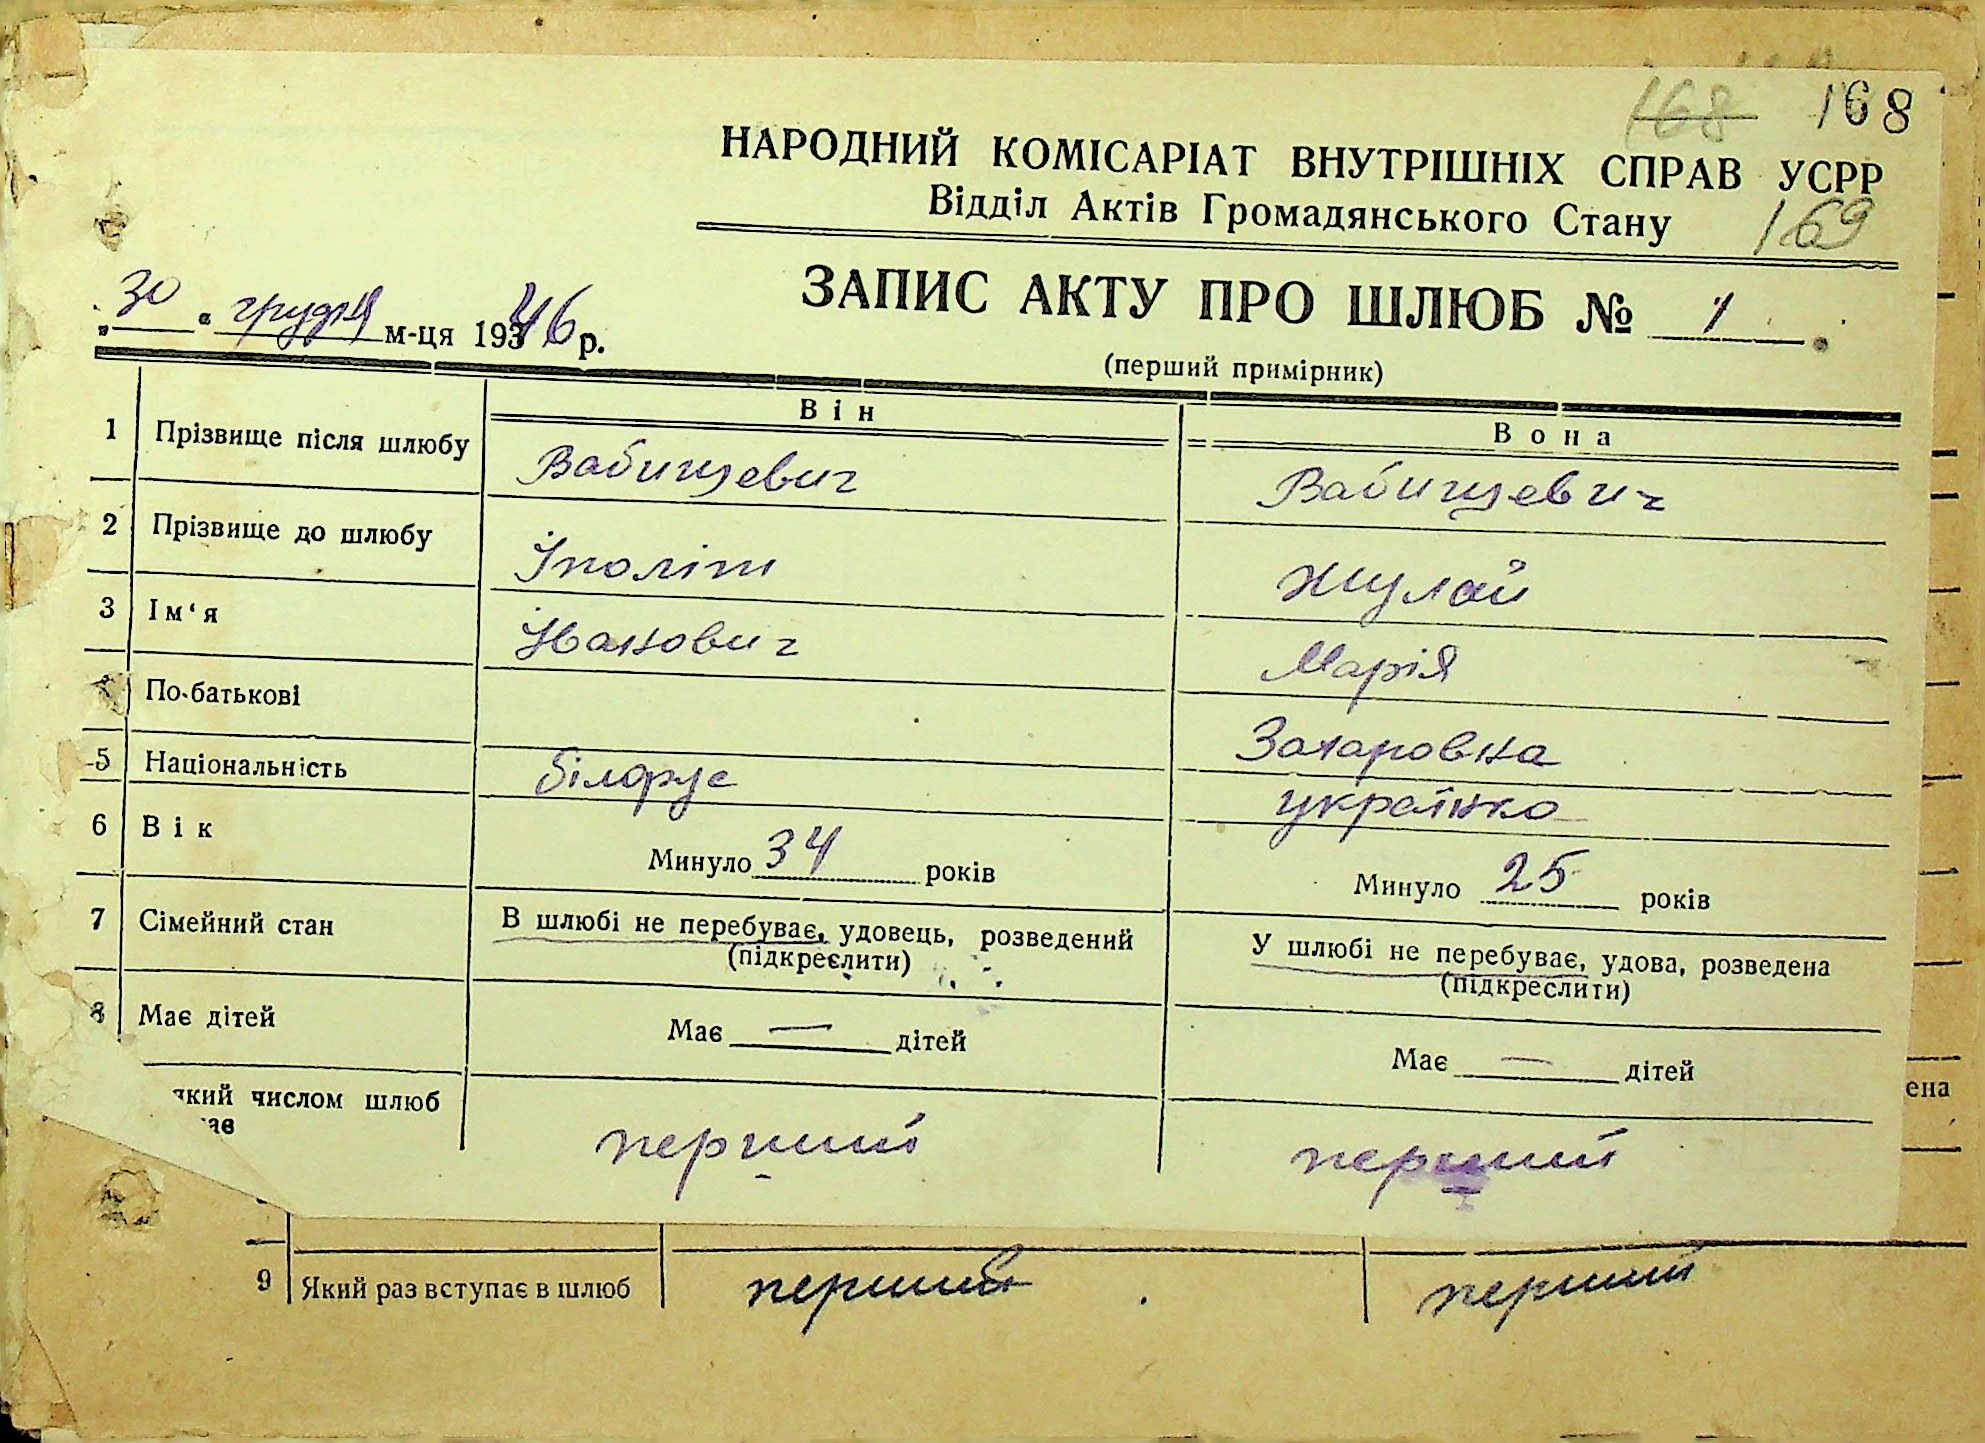 168 168
НАРОДНИЙ КОМІСАРІАТ ВНУТРІШНІХ СПРАВ УСРР
Відділ Актів Громадянського Стану 169
ЗАПИС АКТУ ПРО ШЛЮБ № 1
„30“ грудня м-ця 19346 р.
(перший примірник)
Він Вона
1 Прізвище після шлюбу Вабищевич Вабищевич
2 Прізвище до шлюбу Іполіт Жулай
3 Ім‘я Іванович Марія
По-батькові Захаровна
5 Національність білорус українка
6 Вік Минуло 34 років Минуло 25 років
7 Сімейний стан В шлюбі не перебуває, удовець, розведений У шлюбі не перебуває, удова, розведена
(підкреслити) (підкреслити)
8 Має дітей Має — дітей Має — дітей
який числом шлюб перший перший
ена
9 Який раз вступає в шлюб перший перший